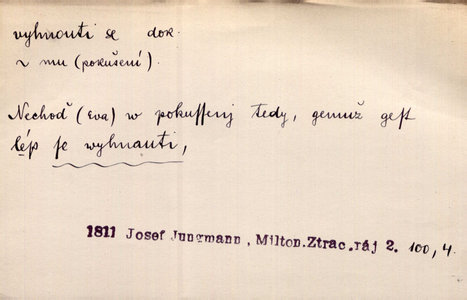 vyhnouti se dok.
z mu (pokušení).
Nechoď (Eva) w pokussenj tedy, gemuž gest
lép se wyhnauti,
1811 Josef Jungmann, Milton.Ztrac.ráj 2. 100, 4.